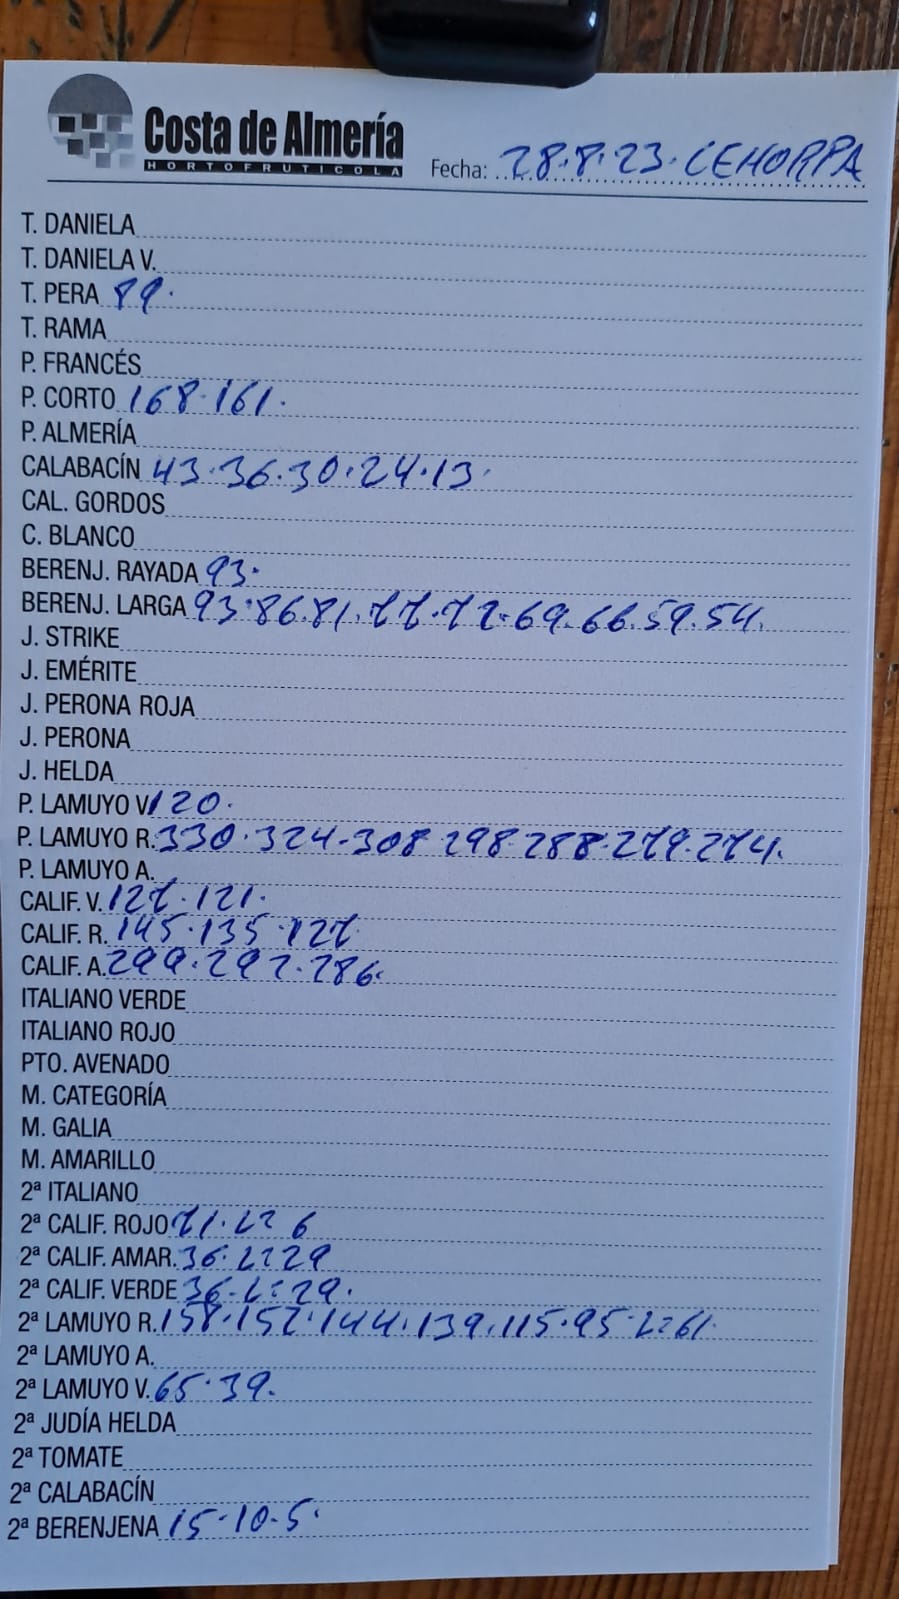 Costa de Almería
HORTOFRUTICOLA
Fecha: 28.8.23. CEHORPA
T. DANIELA
T. DANIELA V.
T. PERA 89.
T. RAMA
P. FRANCÉS
P. CORTO 168.161.
P. ALMERÍA
CALABACÍN 43.36.30.24.13.
CAL. GORDOS
C. BLANCO
BERENJ. RAYADA 93.
BERENJ. LARGA 93.86.81.77.72.69.66.59.54.
J. STRIKE
J. EMÉRITE
J. PERONA ROJA
J. PERONA
J. HELDA
P. LAMUYO V. 120.
P. LAMUYO R. 330.324.308.298.288.279.274.
P. LAMUYO A.
CALIF. V. 127.121.
CALIF. R. 145.135.127
CALIF. A. 299.292.286.
ITALIANO VERDE
ITALIANO ROJO
PTO. AVENADO
M. CATEGORÍA
M. GALIA
M. AMARILLO
2ª ITALIANO
2ª CALIF. ROJO 71. 6
2ª CALIF. AMAR. 36. 29
2ª CALIF. VERDE 36. 29.
2ª LAMUYO R. 158.152.144.139.115.95. 61.
2ª LAMUYO A.
2ª LAMUYO V. 65.39.
2ª JUDÍA HELDA
2ª TOMATE
2ª CALABACÍN
2ª BERENJENA 15.10.5.